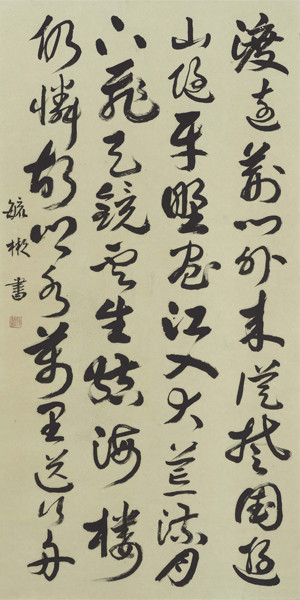 渡遠荊門外来從楚國遊
山隨平野盡江入大荒流月
下飛天鏡雲生結海樓
仍憐故鄉水萬里送行舟
毓書